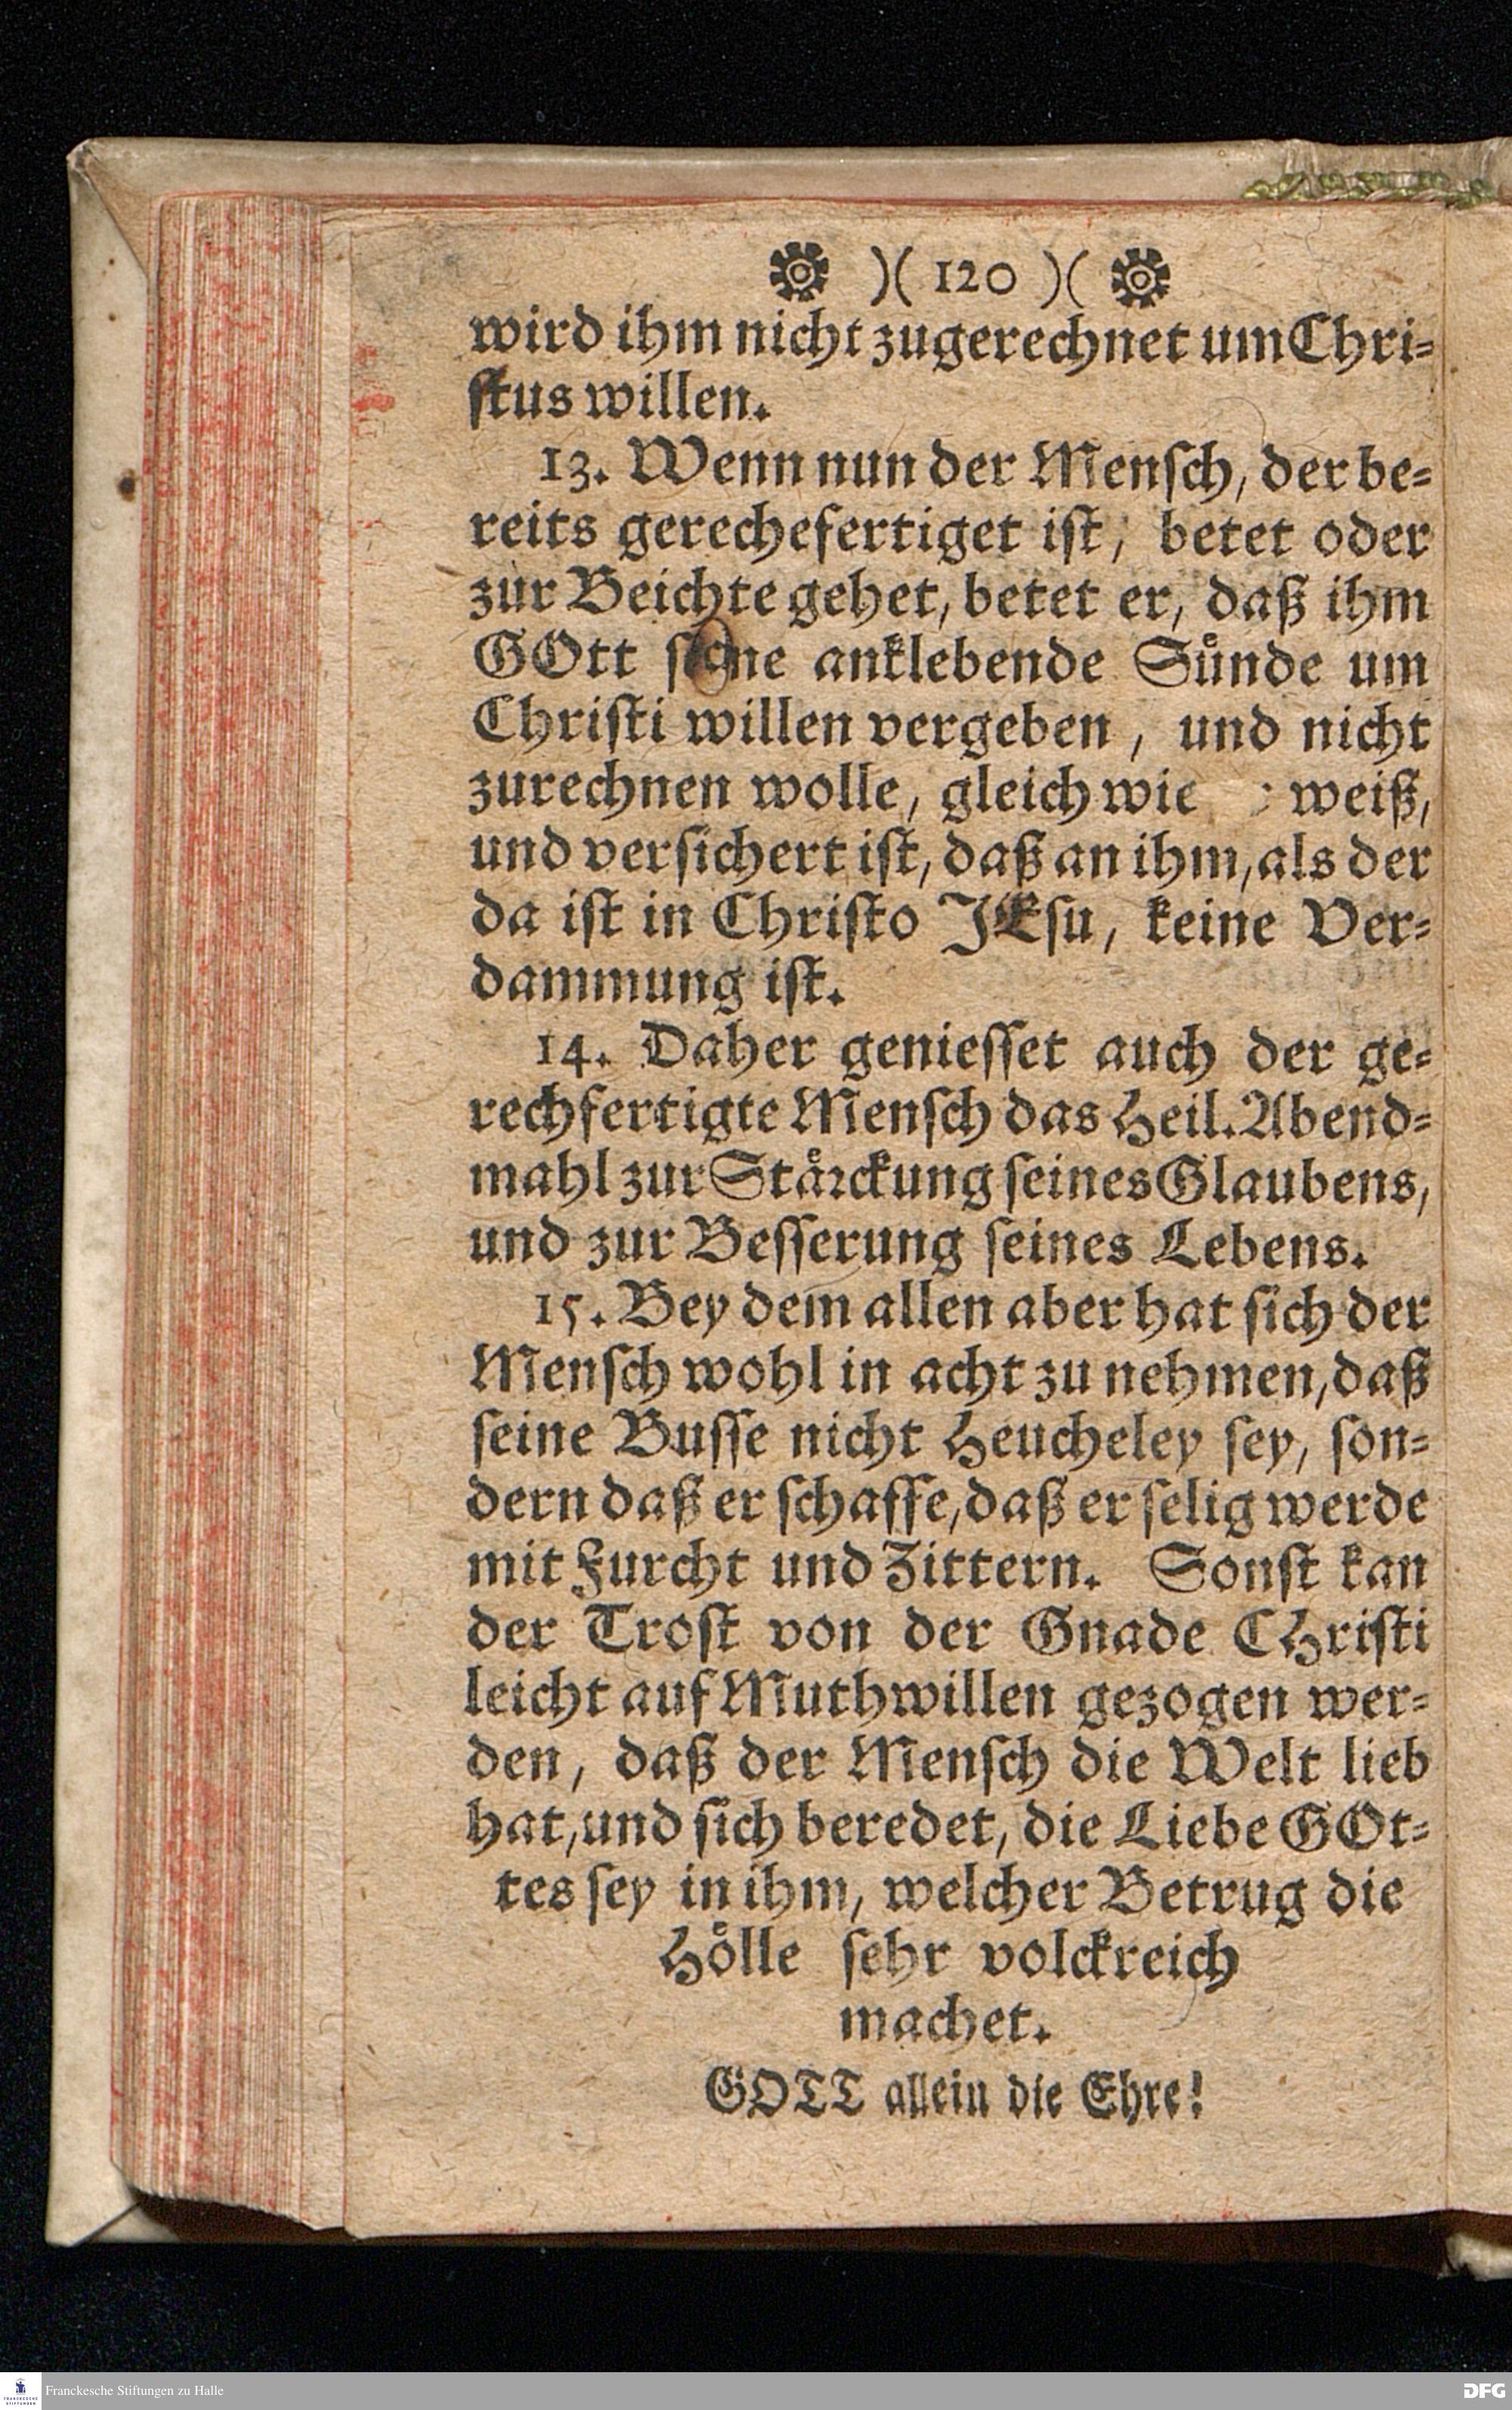 )( 120 )(
wird ihm nicht zugerechnet um Chri-
ſtus willen.
13. Wenn nun der Menſch, der be-
reits gerechefertiget iſt, betet oder
zur Beichte gehet, betet er, daß ihm
GOtt ſeine anklebende Suͤnde um
Chriſti willen vergeben, und nicht
zurechnen wolle, gleich wie weiß,
und verſichert iſt, daß an ihm, als der
da iſt in Chriſto JEſu, keine Ver-
dammung iſt.
14. Daher genieſſet auch der ge-
rechfertigte Menſch das Heil. Abend-
mahl zur Staͤrckung ſeines Glaubens,
und zur Beſſerung ſeines Lebens.
15. Bey dem allen aber hat ſich der
Menſch wohl in acht zu nehmen, daß
ſeine Buſſe nicht Heucheley ſey, ſon-
dern daß er ſchaffe, daß er ſelig werde
mit Furcht und Zittern. Sonſt kan
der Troſt von der Gnade CHriſti
leicht auf Muthwillen gezogen wer-
den, daß der Menſch die Welt lieb
hat, und ſich beredet, die Liebe GOt-
tes ſey in ihm, welcher Betrug die
Hoͤlle ſehr volckreich
machet.
GOTT allein die Ehre!
Franckesche Stiftungen zu Halle
DFG